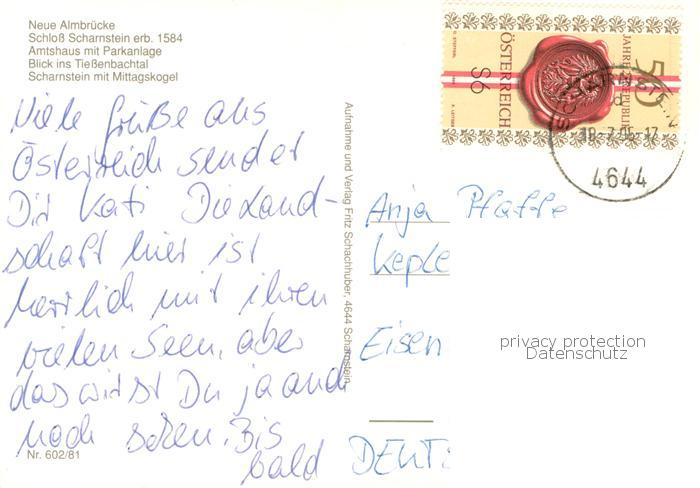 Neue Almbrücke
Schloß Scharnstein erb. 1584
Amtshaus mit Parkanlage
Blick ins Tießenbachtal
Scharnstein mit Mittagskogel
Viele Grüße aus
Österreich sendet
Dir Kati Die Land-
schaft hier ist
herrlich mit ihren
vielen Seen, aber
das wirst Du ja auch
noch sehen. Bis
bald
Nr. 602/81
Aufnahme und Verlag Fritz Schachhuber, 4644 Scharnstein
50
JAHRE REPUBLIK
ÖSTERREICH
S6
4644
Anja Pfaffe
Keple
Eisen
DEUT
privacy protection
Datenschutz